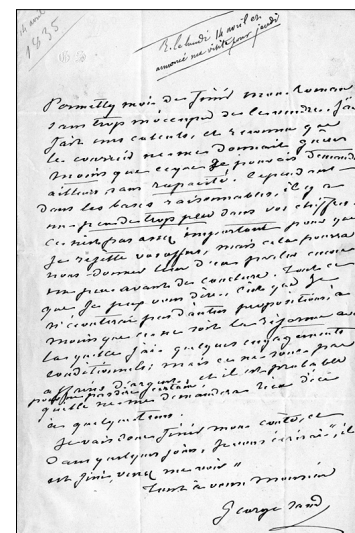 14 avril
1835
R. le lundi 14 avril en
annoncé ma visite pour jeudi
Permettez moi de finir mon Roman
sans trop m'occuper de les vendre. J'ai
fait mes calculs, et reconnu que
le courrier ne me donnait guères
moins que ce que je pouvais demander
ailleurs sans rapacité. Cependant
dans les bases raisonnables, il y a
un peu de trop peu dans vos chiffres.
Ce n'est pas assez important pour que
je rejette vos offres, mais cela pourra
nous donner lieu d'en parler encore
un peu avant de conclure. Tout ce
que je peux vous dire c'est que je
n'écouterai pas d'autres propositions à
moins que ce ne soit la réforme avec
laquelle j'ai quelques engagements
conditionnels; mais ce ne sont pas
affaires d'argent, et il est probable
pour ne pas dire certain
qu'elle ne me demandera rien d'ici
à quelque tems.
Je vais donc finir mon conte, et
dans quelques jours, je vous écrirai "il
est fini, venez me voir"
Tout à vous monsieur
George Sand